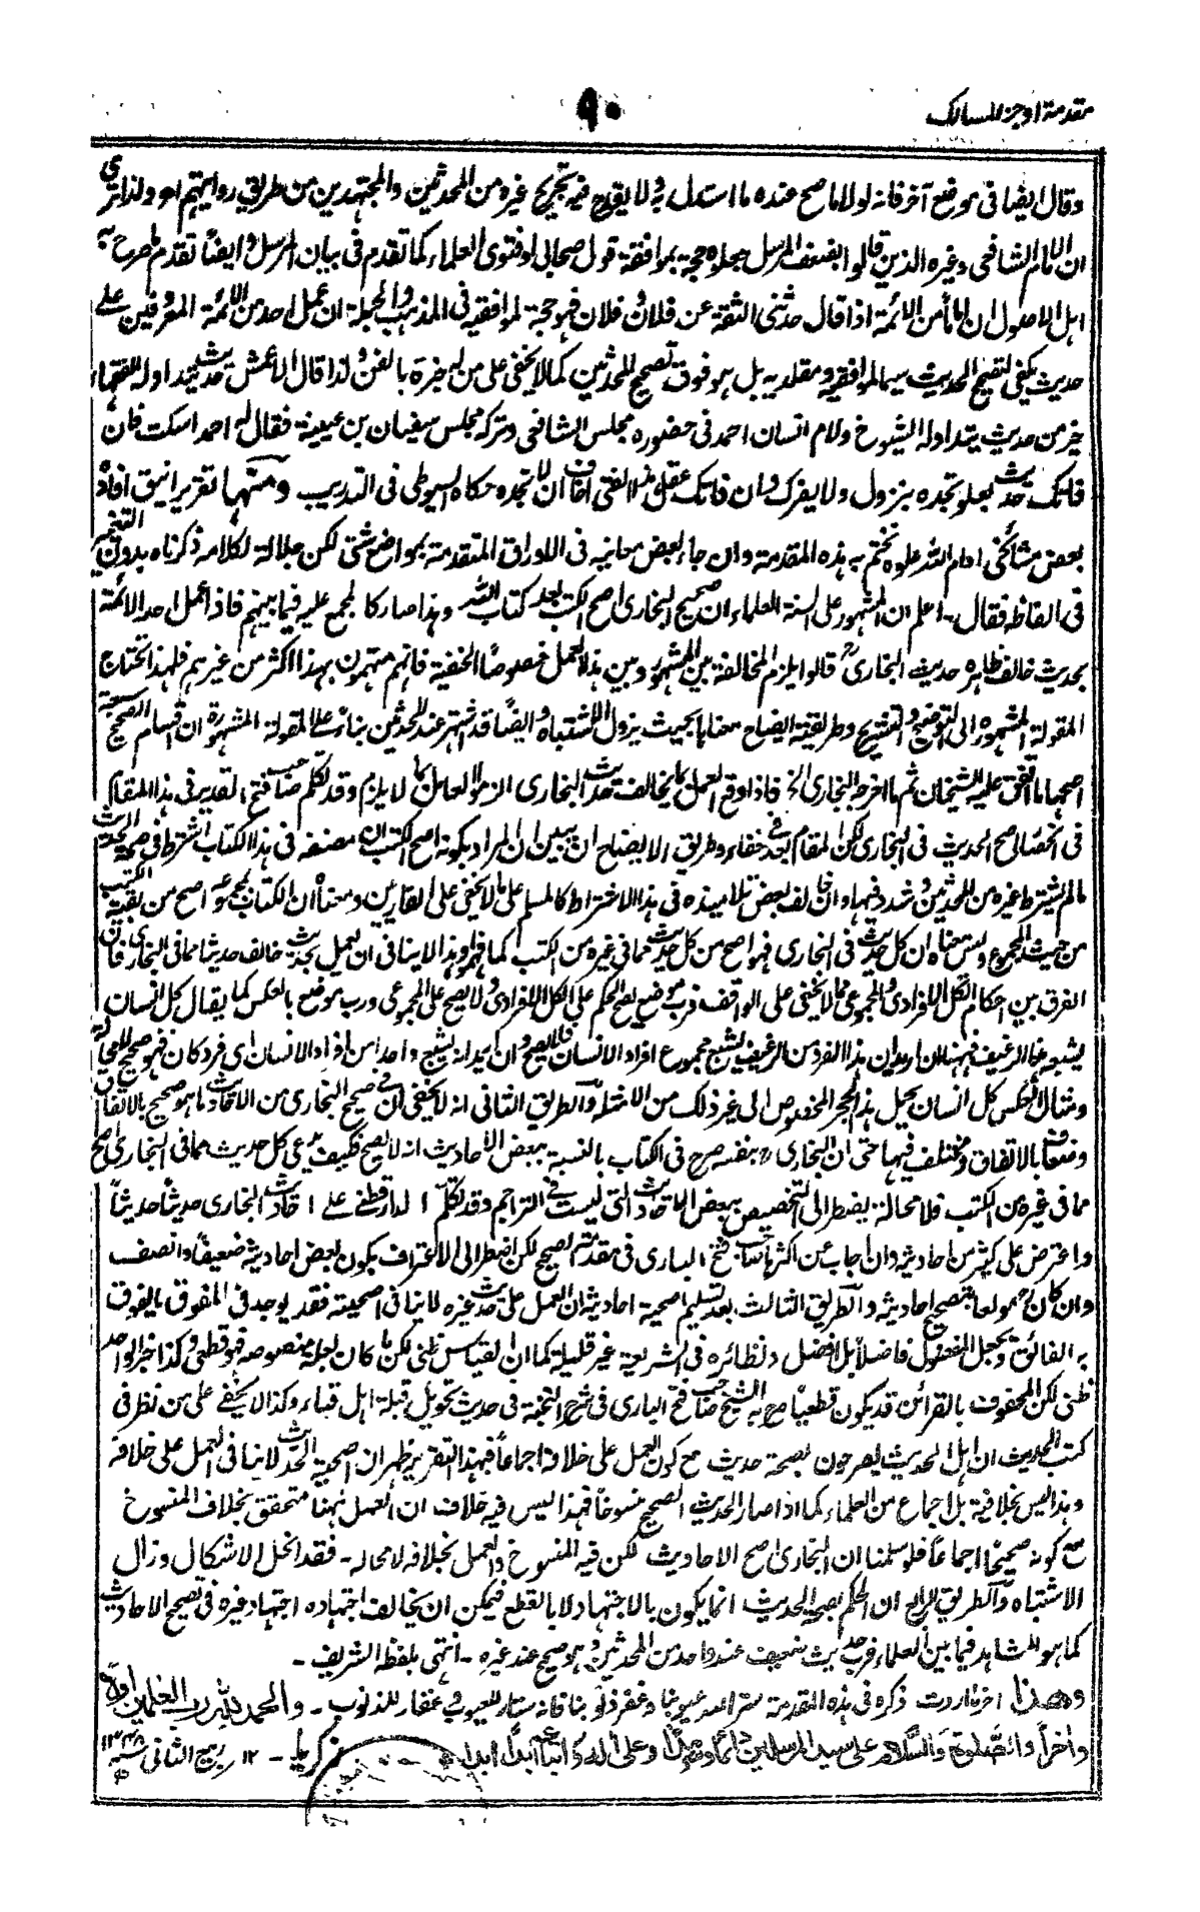 مقدمة اوجز المسالك
٩٠
وقال ايضا فى موضع آخر فانه لولا ما صح عنده ما استدل به ولا يقدح فيه تجريح غيره من المحدثين والمجتهدين من طريق روايتهم اھ ولذا ترى
ان الامام الشافعى وغيره الذين قالوا بضعف المرسل جعلوه حجة بموافقة قول صحابى او فتوى العلماء كما تقدم فى بيان المرسل وايضاً تقدم ما صرح به
اهل الاصول ان اماما من الائمة اذا قال حدثنى الثقة عن فلان فلان فهو حجة لموافقيه فى المذهب والجملة ان عمل احد من الائمة المعروفين على
حديث يكفى لتصحيح الحديث سيما لموافقيه ومقلديه بل هو فوق تصحيح المحدثين كما لا يخفى على من له خبرة بالفن ولذا قال الاعمش حديث يتداوله الفقهاء
خير من حديث يتداوله الشيوخ ولام انسان احمد فى حضوره مجلس الشافعى وتركه مجلس سفيان بن عيينة فقال له احمد اسكت فان
فاتك حديث بعلو تجده بنزول ولا يضرك وان فاتك عقل هذا الفتى اخاف ان لا تجده حكاه السيوطى فى التدريب ومنها تقرير انيق افاده
بعض مشائخى ادام الله علوه نختم به هذه المقدمة وان جاء بعض معانيه فى الاوراق المتقدمة بمواضع شتى لكن جلالة لكلامه ذكرناه بدون التغيير
فى الفاظه فقال - اعلم ان المشهور على السنة العلماء ان صحيح البخارى اصح الكتب بعد كتاب الله وهذا صار كالمجمع عليه فيما بينهم فاذا عمل احد الائمة
بحديث خالف ظاهره حديث البخارى قالوا يلزم المخالفة بين المشهور وبين هذا العمل خصوصاً الحنفية فانهم متهمون بهذا اكثر من غيرهم فلهذا تحتاج
المقولة المشهورة الى التوضيح والتشريح وطريقة ايضاح معناها بحيث يزول الاشتباه وايضاً قد اشتهر عند المحدثين بناءً على المقولة المشهورة ان اقسام الصحيح سبعة
اصحها ما اتفق عليه الشيخان ثم ما اخرجه البخارى الخ فاذا وقع العمل بما يخالف حديث البخارى الزموا العامل بما لا يلزم وقد تكلم صاحب فتح القدير فى هذا المقام
فى انحصار اصح الحديث فى البخارى لكن المقام بعد فى خفاء وطريق الايضاح ان يبين ان المراد بكونه اصح الكتب ان مصنفه فى هذا الكتاب اشترط فى صحة الحديث
ما لم يشترط غيره من المحدثين وشدد فيها وان خالف بعض تلاميذه فى هذا الاشتراط كالمسلم على ما لا يخفى على العارفين ومعناه ان الكتاب بمجموعه اصح من بقية الكتب
من حيث المجموع وليس معناه ان كل حديث فى البخارى فهو اصح من كل حديث مما فى غيره من الكتب كما فهموا وهذا لا ينافى ان يعمل بحديث خالف حديثا مما فى البخارى فان
الفرق بين احكام الكل الافرادى والمجموعى مما لا يخفى على الواقف فرب موضع يصح الحكم على الكل الافرادى ولا يصح على المجموعى ورب موضع بالعكس كما يقال كل انسان
يشبعه هذا الرغيف فههنا ان اريد ان هذا الفرد من الرغيف يشبع مجموع افراد الانسان فلا يصح وان اريد انه يشبع واحدا من افراد الانسان اى فرد كان فهو صحيح لا محالة
ومثال العكس كل انسان يحمل هذا الحجر المخصوص الى غير ذلك من الامثلة والطريق الثانى انه لا يخفى ان فى صحيح البخارى من الاحاديث ما هو صحيح بالاتفاق
وضعاف بالاتفاق ومختلف فيها حتى ان البخارى بنفسه صرح فى الكتاب بالنسبة ببعض الاحاديث انه لا يصح فكيف يدعى كل حديث مما فى البخارى اصح
مما فى غيره من الكتب فلا محالة يضطر الى التخصيص ببعض الاحاديث التى ليست فى التراجم وقد تكلم الدارقطنى على احاديث البخارى حديثاً حديثاً
واعترض على كثير من احاديثه وان اجاب عن اكثرها صاحب فتح البارى فى مقدمته لصحيح لكن اضطر الى الاعتراف بكون بعض احاديثه ضعيفاً وانصف
وان كان مولعا بتصحيح احاديثه والطريق الثالث بعد تسليم اصحية احاديثه ان العمل على حديث غيره لا ينافى اصحيته فقد يوجد فى المفوق ما يفوق
به الفائق ويجعل المفضول فاضلاً بل افضل ونظائره فى الشريعة غير قليلة كما ان القياس ظنى لكن ما كان بعلة منصوصة فهو قطعى وكذا خبر الواحد
ظنى لكن المحفوف بالقرائن قد يكون قطعياً صرح به الشيخ صاحب فتح البارى فى شرح النخبة فى حديث تحويل قبلة اهل قباء وكذا لا يخفى على من نظر فى
كتب الحديث ان اهل الحديث يصرحون بصحة حديث مع كون العمل على خلافه اجماعاً فبهذا التقرير ظهر ان اصحية الحديث لا ينافى العمل على خلافه
وهذا ليس بخلافية بل اجماع من العلماء كما اذا صار الحديث الصحيح منسوخاً فهذا ليس فيه خلاف ان العمل ههنا متحقق بخلاف المنسوخ
مع كونه صحيحا اجماعاً فلو سلمنا ان البخارى اصح الاحاديث لكن فيه المنسوخ والعمل بخلافه لا محالة - فقد انحل الاشكال وزال
الاشتباه والطريق الرابع ان الحكم بصحة الحديث انما يكون بالاجتهاد لا بالقطع فيمكن ان يخالف اجتهاده اجتهاد غيره فى تصحيح الاحاديث
كما هو المشاهد فيما بين العلماء فرب حديث ضعيف عند واحد من المحدثين وهو صحيح عند غيره - انتهى بلفظه الشريف -
وهذا آخر ما اردت ذكره فى هذه المقدمة ستر الله عيوبنا وغفر ذنوبنا فانه ستار للعيوب وغفار للذنوب - والحمد لله رب العلمين اولاً
واٰخراً والصلوٰة والسلام على سيد المرسلين دائماً وسرمداً وعلى اله واتباعه ابداً ابداً زكريا - ١٢ ربيع الثانى سنة ١٣٤٨ھ